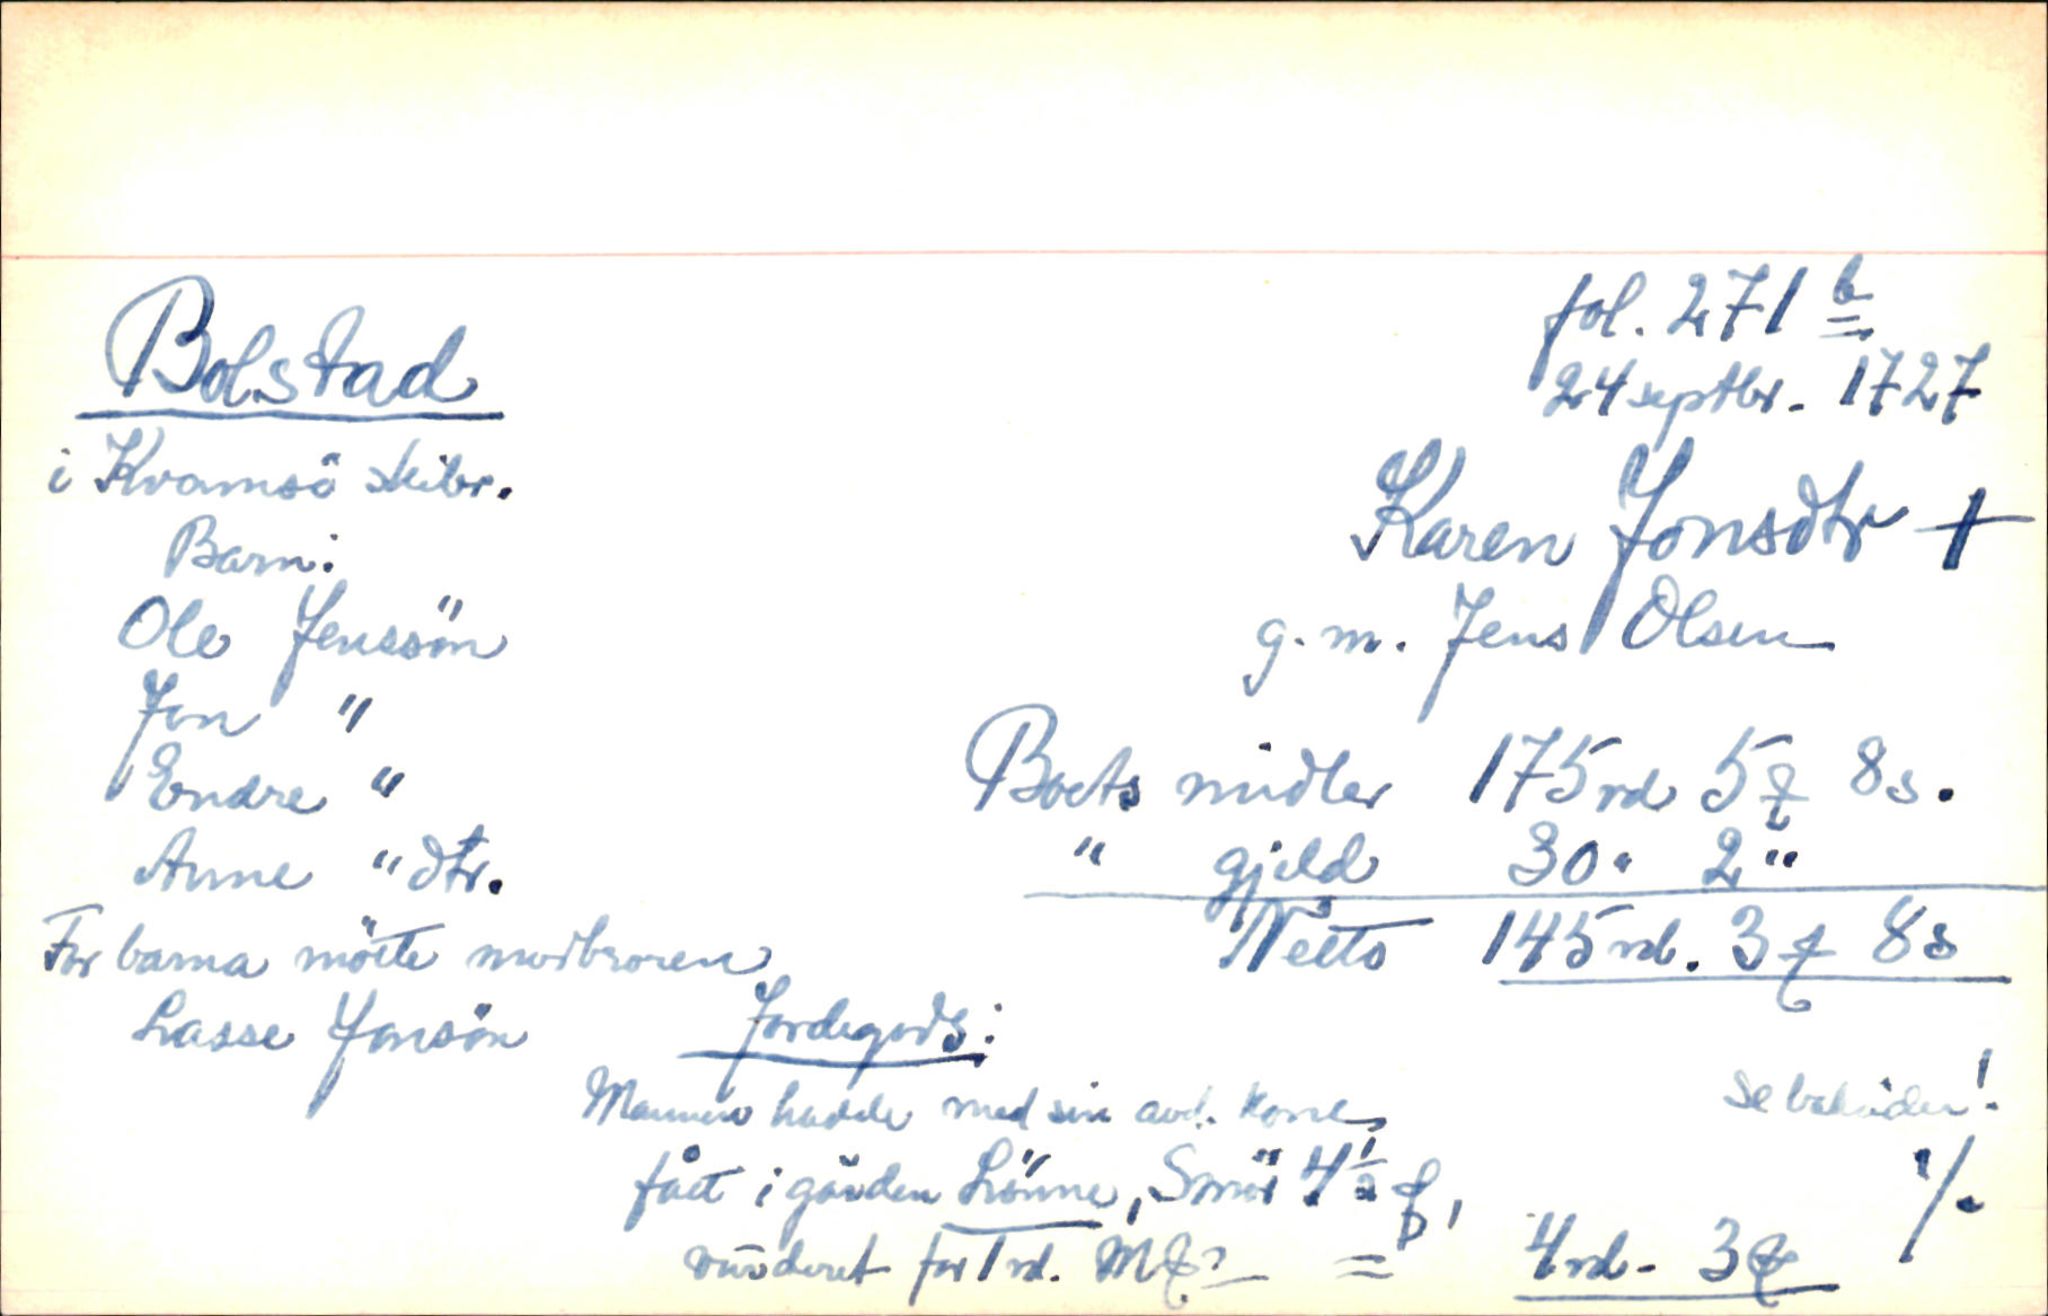 fol. 271 b
24 septbr. 1727
Bolstad
i Kvamsö skibr.
Karen Jonsdtr +
g. m. Jens Olsen
Barn:
Ole Jenssön
Jon "
Endre "
Anne " dtr.
For barna mötte morbroren
Lasse Jonsön
Boets midler 175 rd 5 8 s.
" gjeld 30 " 2 "
Netto 145 rd. 3 8 s
Jordegods:
Mannen hadde med sin avd. kone
fåt i gården Lönne, Smör 4 1/2
vurderet for 1 rd. =
4 rd - 3
Se baksiden!
./.